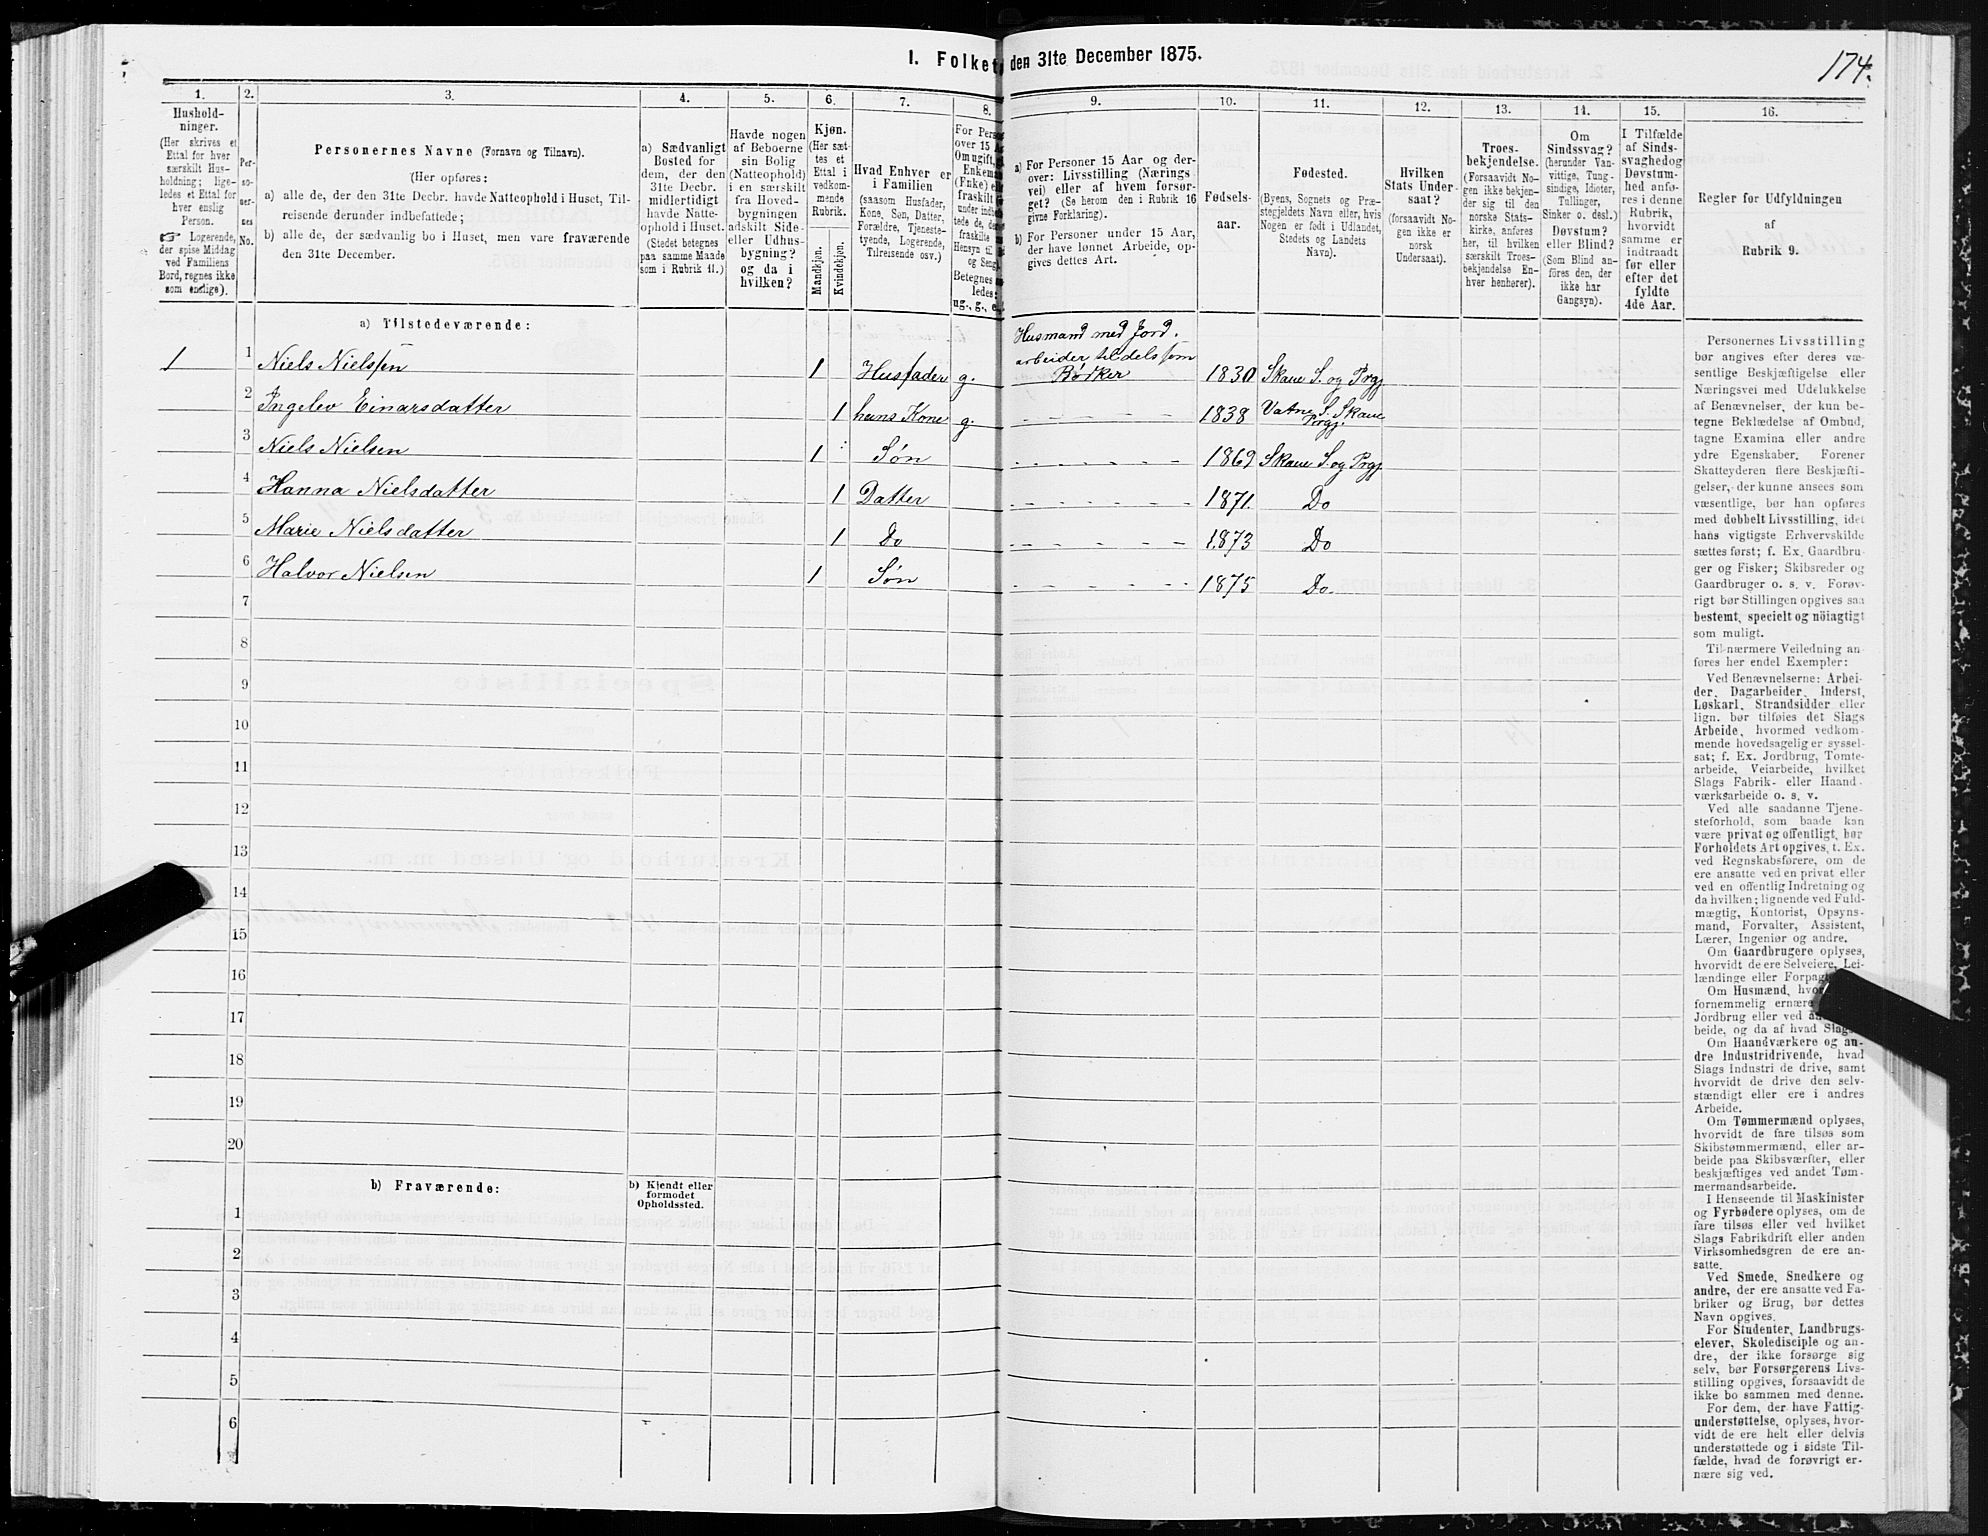 I. Folket den 31te December 1875.
174.
1. 2. 3. 4. 5. 6. 7. 8. 9. 10. 11. 12. 13. 14. 15. 16.
Hushold-
ninger.
(Her skrives et
Ettal for hver
særskilt Hus-
holdning; lige-
ledes et Ettal for
hver enslig
Person.
☞ Logerende,
der spise Middag
ved Familiens
Bord, regnes ikke
som enslige).
Per-
so-
ner-
nes
No.
Personernes Navne (Fornavn og Tilnavn).
(Her opføres:
a) alle de, der den 31te Decbr. havde Natteophold i Huset, Til-
reisende derunder indbefattede;
b) alle de, der sædvanlig bo i Huset, men vare fraværende
den 31te December.
a) Sædvanligt
Bosted for
dem, der den
31te Decbr.
midlertidigt
havde Natte-
ophold i Huset.
(Stedet betegnes
paa samme Maade
som i Rubrik 11.)
Havde nogen
af Beboerne
sin Bolig
(Natteophold)
i en særskilt
fra Hoved-
bygningen
adskilt Side-
eller Udhus-
bygning?
og da i
hvilken?
Kjøn.
(Her sæt-
tes et
Ettal i
vedkom-
mende
Rubrik.
Mandkjøn.
Kvindekjøn.
Hvad Enhver er
i Familien
(saasom Husfader,
Kone, Søn, Datter,
Forældre, Tjeneste-
tyende, Logerende,
Tilreisende osv.)
For Perso
over 15 A
Om ugift,
Enkema
(Enke) el
fraskilt
under indb
tede de, de
fraskilte
Hensyn til
og Seng
Betegnes
ledes:
ug., g., e
a) For Personer 15 Aar og der-
over: Livsstilling (Nærings
vei) eller af hvem forsør-
get? (Se herom den i Rubrik 16
givne Forklaring).
b) For Personer under 15 Aar,
der have lønnet Arbeide, op-
gives dettes Art.
Fødsels-
aar.
Fødested.
(Byens, Sognets og Præ-
stegjeldets Navn eller, hvis
Nogen er født i Udlandet,
Stedets og Landets
Navn).
Hvilken
Stats Under-
saat?
(forsaavidt No-
gen ikke er
norsk
Undersaat).
Troes-
bekjendelse.
(Forsaavidt No-
gen ikke bekjen-
der sig til den
norske Stats-
kirke, anføres
her, til hvilken
særskilt Troes-
bekjendelse En-
hver henhører).
Om
Sindssvag?
(herunder Van-
vittige, Tung-
sindige, Idioter,
Tullinger,
Sinker o. desl.)
Døvstum?
eller Blind?
(Som Blind an-
føres den, der
ikke har
Gangsyn).
I Tilfælde
af Sinds-
svaghed og
Døvstum-
hed anfø-
res i denne
Rubrik,
hvorvidt
samme er
indtraadt
før eller
efter det
fyldte
4de Aar.
Regler for Udfyldningen
af
Rubrik 9.
a) Tilstedeværende:
Husmand med Jord.
arbeider til dels som
1 1 Niels Nielsen 1 Husfader g. Bødker 1830 Skaue S. og Prgj
2 Ingelev Einarsdatter 1 hans Kone g. 1838 Vatne S. Skaue
Prgj.
3 Niels Nielsen 1 Søn 1869 Skaue S. og Prgj
4 Hanna Nielsdatter 1 Datter 1871. Do
5 Marie Nielsdatter 1 Do 1873 Do
6 Halvor Nielsen 1 Søn 1875 Do.
7
8
9
10
11
12
13
14
15
16
17
18
19
20
b) Fraværende:
b) Kjendt eller
formodet
Opholdssted.
1
2
3
4
5
6
Personernes Livsstilling
bør angives efter deres væ-
sentlige Beskjæftigelse eller
Næringsvei med Udelukkelse
af Benævnelser, der kun be-
tegne Beklædelse af Ombud,
tagne Examina eller andre
ydre Egenskaber. Forener
Skatteyderen flere Beskjæfti-
gelser, der kunne ansees som
væsentlige, bør han opføres
med dobbelt Livsstilling, idet
hans vigtigste Erhvervskilde
sættes først; f. Ex. Gaardbru-
ger og Fisker; Skibsreder og
Gaardbruger o. s. v. Forøv-
rigt bør Stillingen opgives saa
bestemt, specielt og nöiagtigt
som muligt.
Til nærmere Veiledning an-
føres her endel Exempler:
Ved Benævnelserne: Arbei-
der, Dagarbeider, Inderst,
Løskarl, Strandsidder eller
lign. bør tilføies det Slags
Arbeide, hvormed vedkom-
mende hovedsagelig er syssel-
sat; f. Ex. Jordbrug, Tomte-
arbeide, Veiarbeide, hvilket
Slags Fabrik- eller Haand-
værksarbeide o. s. v.
Ved alle saadanne Tjene-
steforhold, som baade kan
være privat og offentligt, bør
Forholdets Art opgives, t. Ex.
ved Regnskabsførere, om de
ere ansatte ved en privat eller
ved en offentlig Indretning og
da hvilken; lignende ved Fuld-
mægtig, Kontorist, Opsyns-
mand, Forvalter, Assistent,
Lærer, Ingeniør og andre.
Om Gaardbrugere oplyses,
hvorvidt de ere Selveiere, Lei-
lændinge eller Forpag
Om Husmænd, hvo
fornemmelig ernære
Jordbrug eller ved
beide, og da af hvad Slags
Om Haandværkere og an-
dre Industridrivende, hvad
Slags Industri de drive, samt
hvorvidt de drive den selv-
stændigt eller ere i andres
Arbeide.
Om Tømmermænd oplyses,
hvorvidt de fare tilsøs som
Skibstømmermænd, eller ar-
beide paa Skibsværfter, eller
beskjæftiges ved andet Tøm-
mermandsarbeide.
I Henseende til Maskinister
og Fyrbødere oplyses, om de
fare tilsøs eller ved hvilket
Slags Fabrikdrift eller anden
Virksomhedsgren de ere an-
satte.
Ved Smede, Snedkere og
andre, der ere ansatte ved Fa-
briker og Brug, bør dettes
Navn opgives.
For Studenter, Landbrugs-
elever, Skoledisciple og an-
dre, der ikke forsørge sig
selv, bør Forsørgerens Livs-
stilling opgives, forsaavidt de
ikke bo sammen med denne.
For dem, der have Fattig-
understøttelse, oplyses, hvor-
vidt de ere helt eller delvis
understøttede og i sidste Til-
fælde, hvad de forøvrigt er-
nære sig ved.